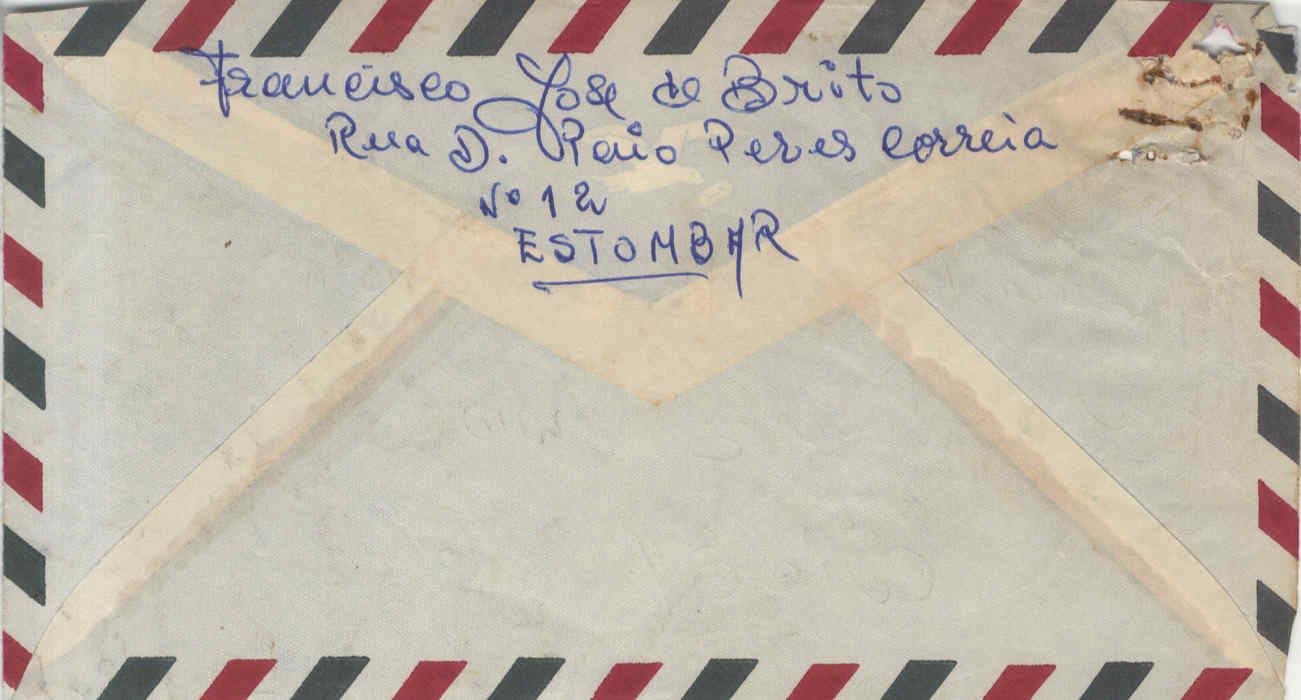 Francisco José de Brito
Rua D. Paio Peres Correia
Nº 12
ESTOMBAR